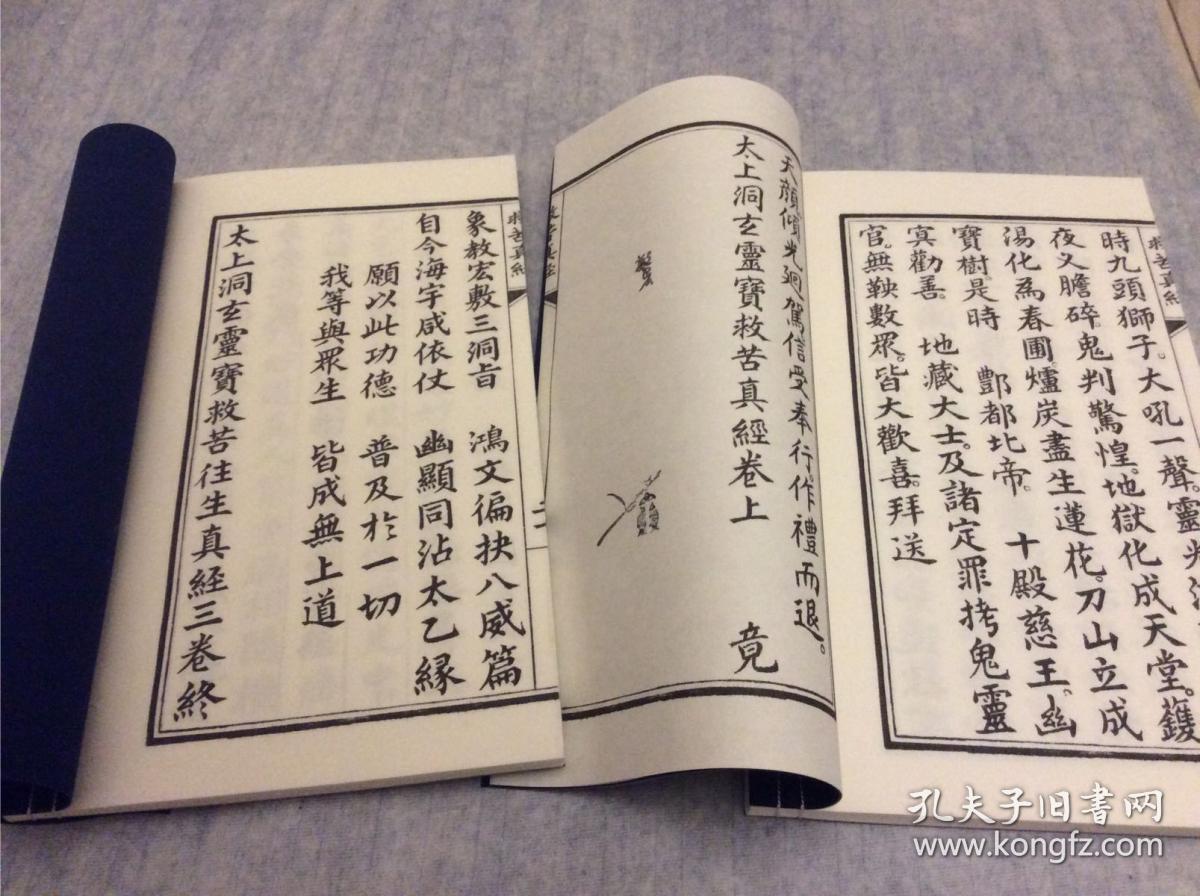 救苦真經
時九頭獅子。大吼一聲。靈光
夜义膽碎。鬼判驚惶。地獄化成天堂。鑊
湯化為春圃爐炭盡生蓮花。刀山立成
寶樹。是時 酆都北帝。 十殿慈王。幽
冥勸善。 地藏大士。及諸定罪拷鬼靈
官。無鞅數眾。皆大歡喜。拜送
天顏傾光迴駕信受奉行。作禮而退。
太上洞玄靈寶救苦真經卷上 竟
救苦真經
救苦真經
二
象教宏敷三洞旨 鴻文徧抉八威篇
自今海宇咸依仗 幽顯同沾太乙緣
願以此功德 普及於一切
我等與眾生 皆成無上道
太上洞玄靈寶救苦往生真経三卷終
孔夫子旧书网
www.kongfz.com